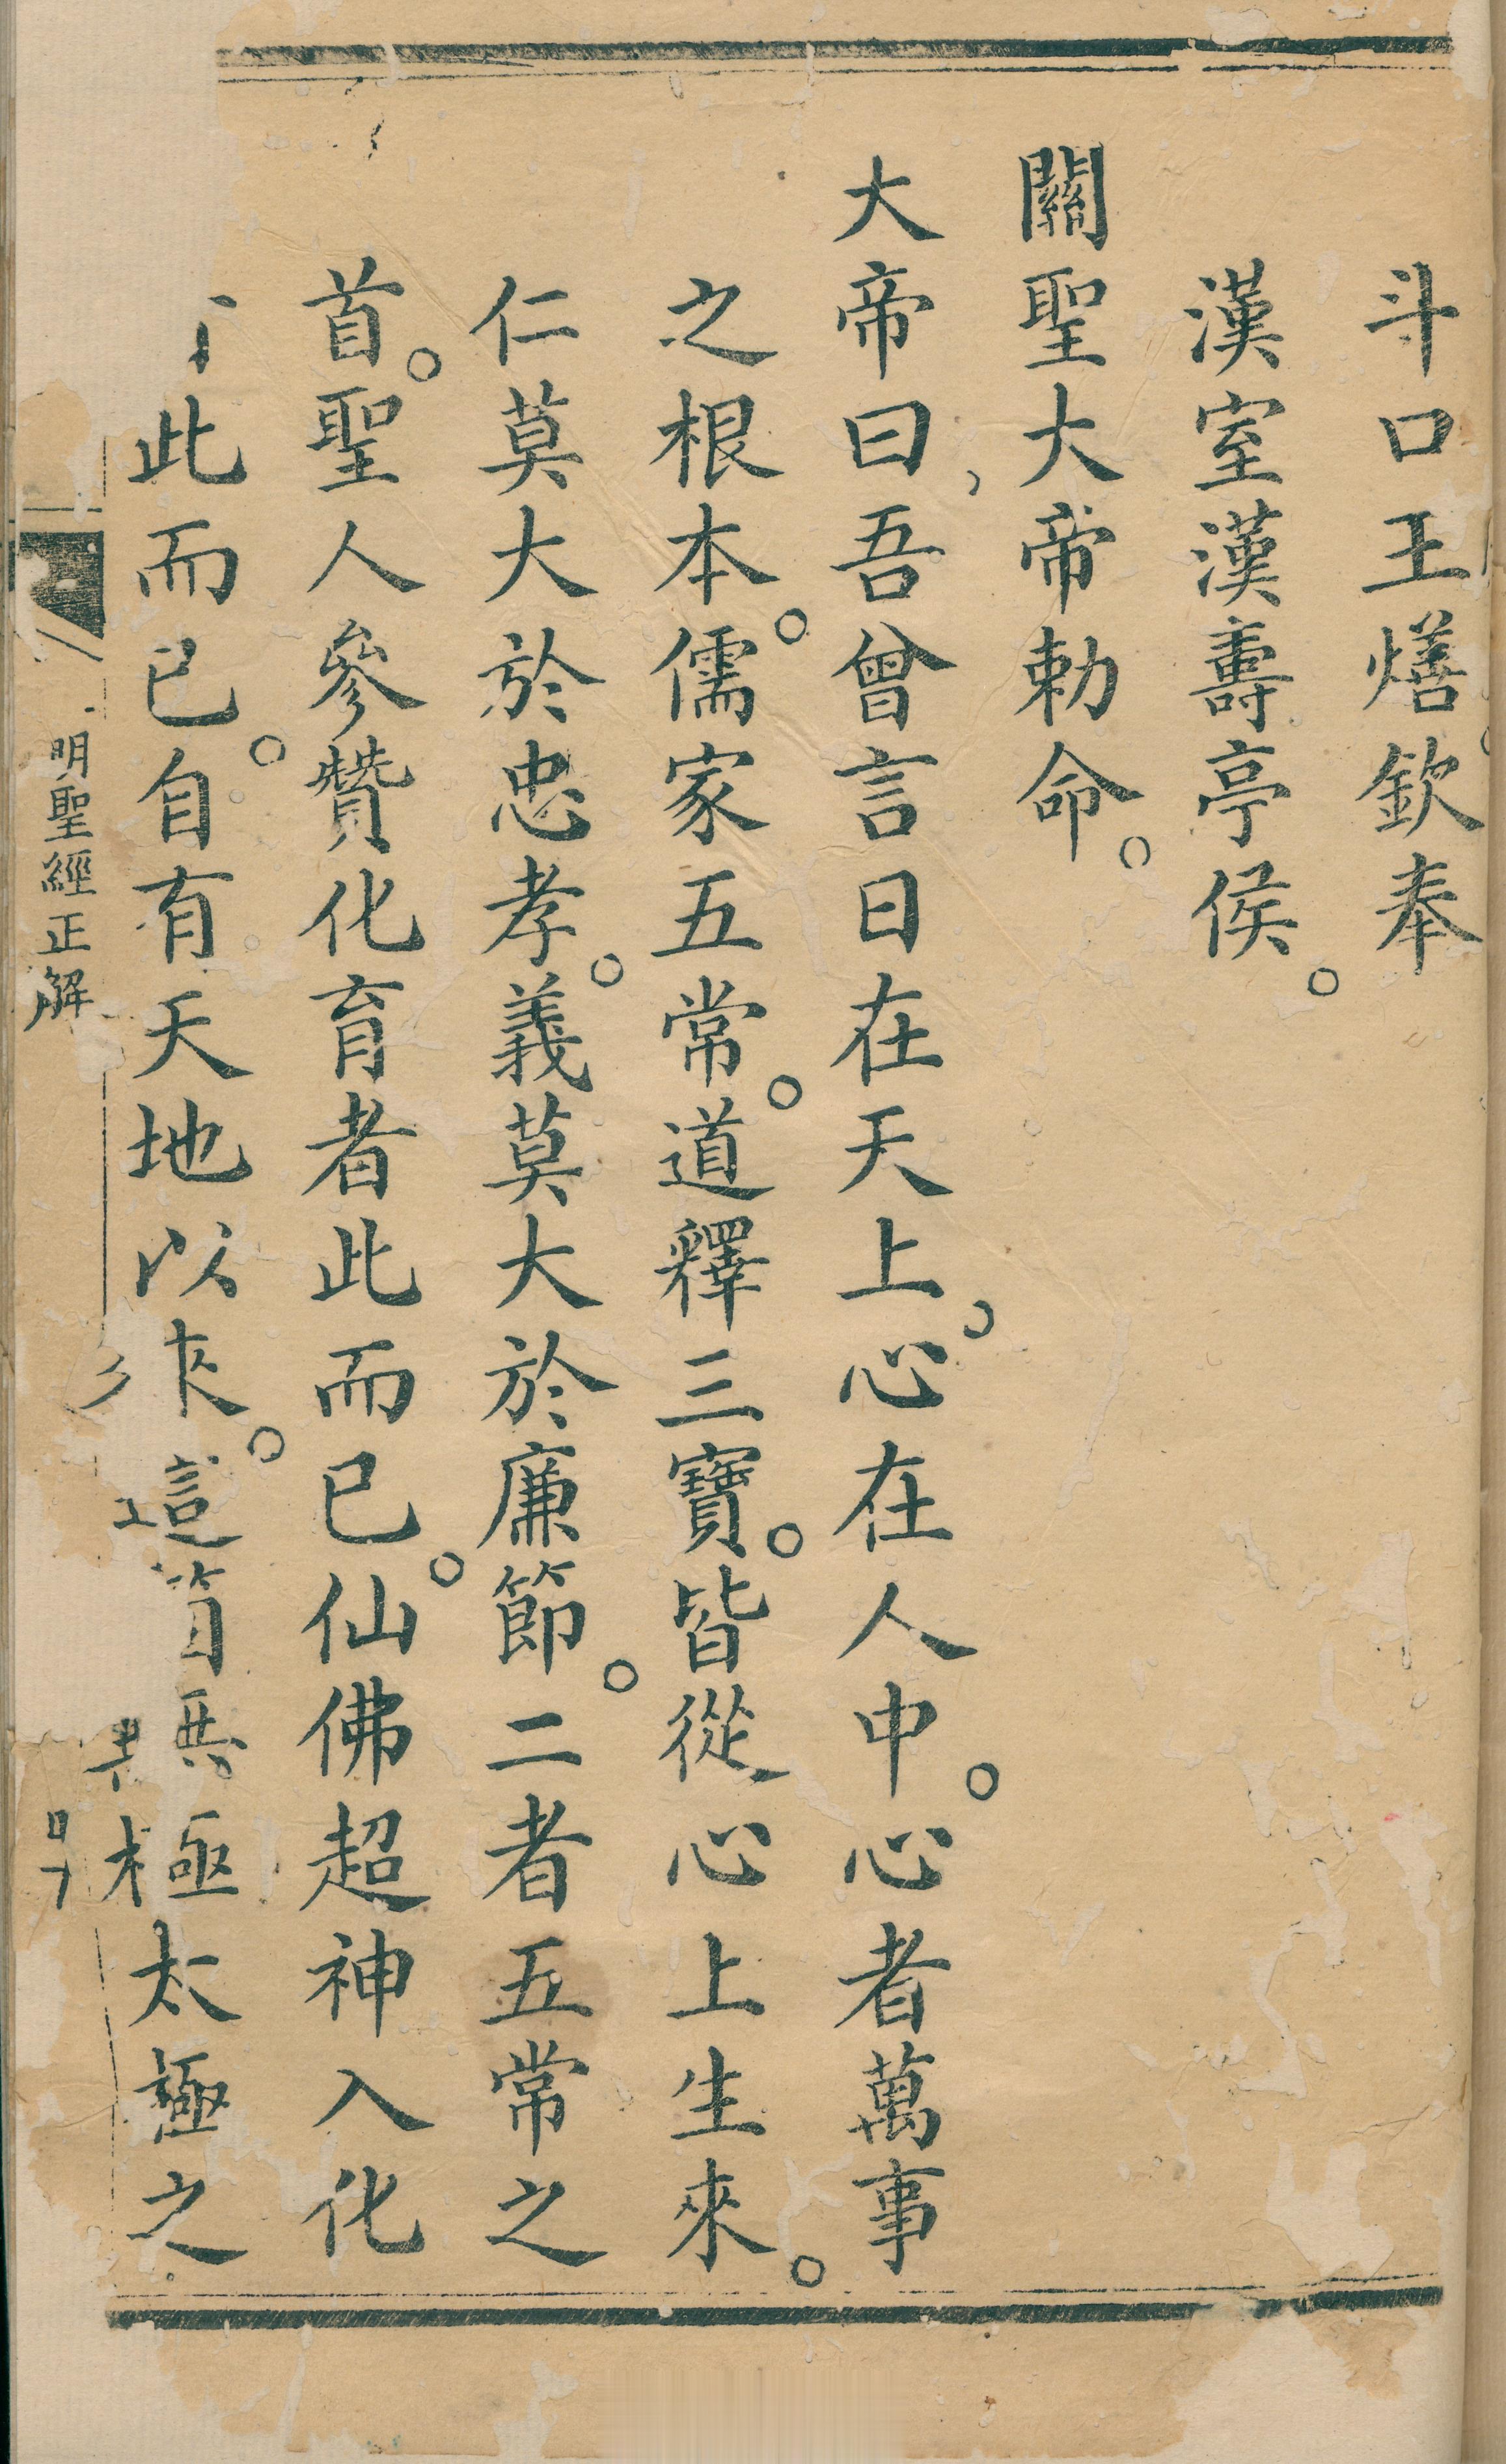 斗口王燌欽奉
漢室漢壽亭侯。
關聖大帝勅命。
大帝曰吾曾言日在天上。心在人中。心者萬事
之根本。儒家五常。道釋三寶。皆從心上生來。
仁莫大於忠孝。義莫大於廉節。二者五常之
首。聖人參贊化育者此而已。仙佛超神入化
此而已。自有天地以來。這箇無極太極之
明聖經正解